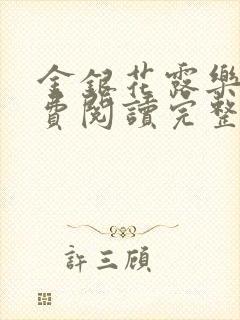 金銀花露樂
費閱讀完整
許三顧